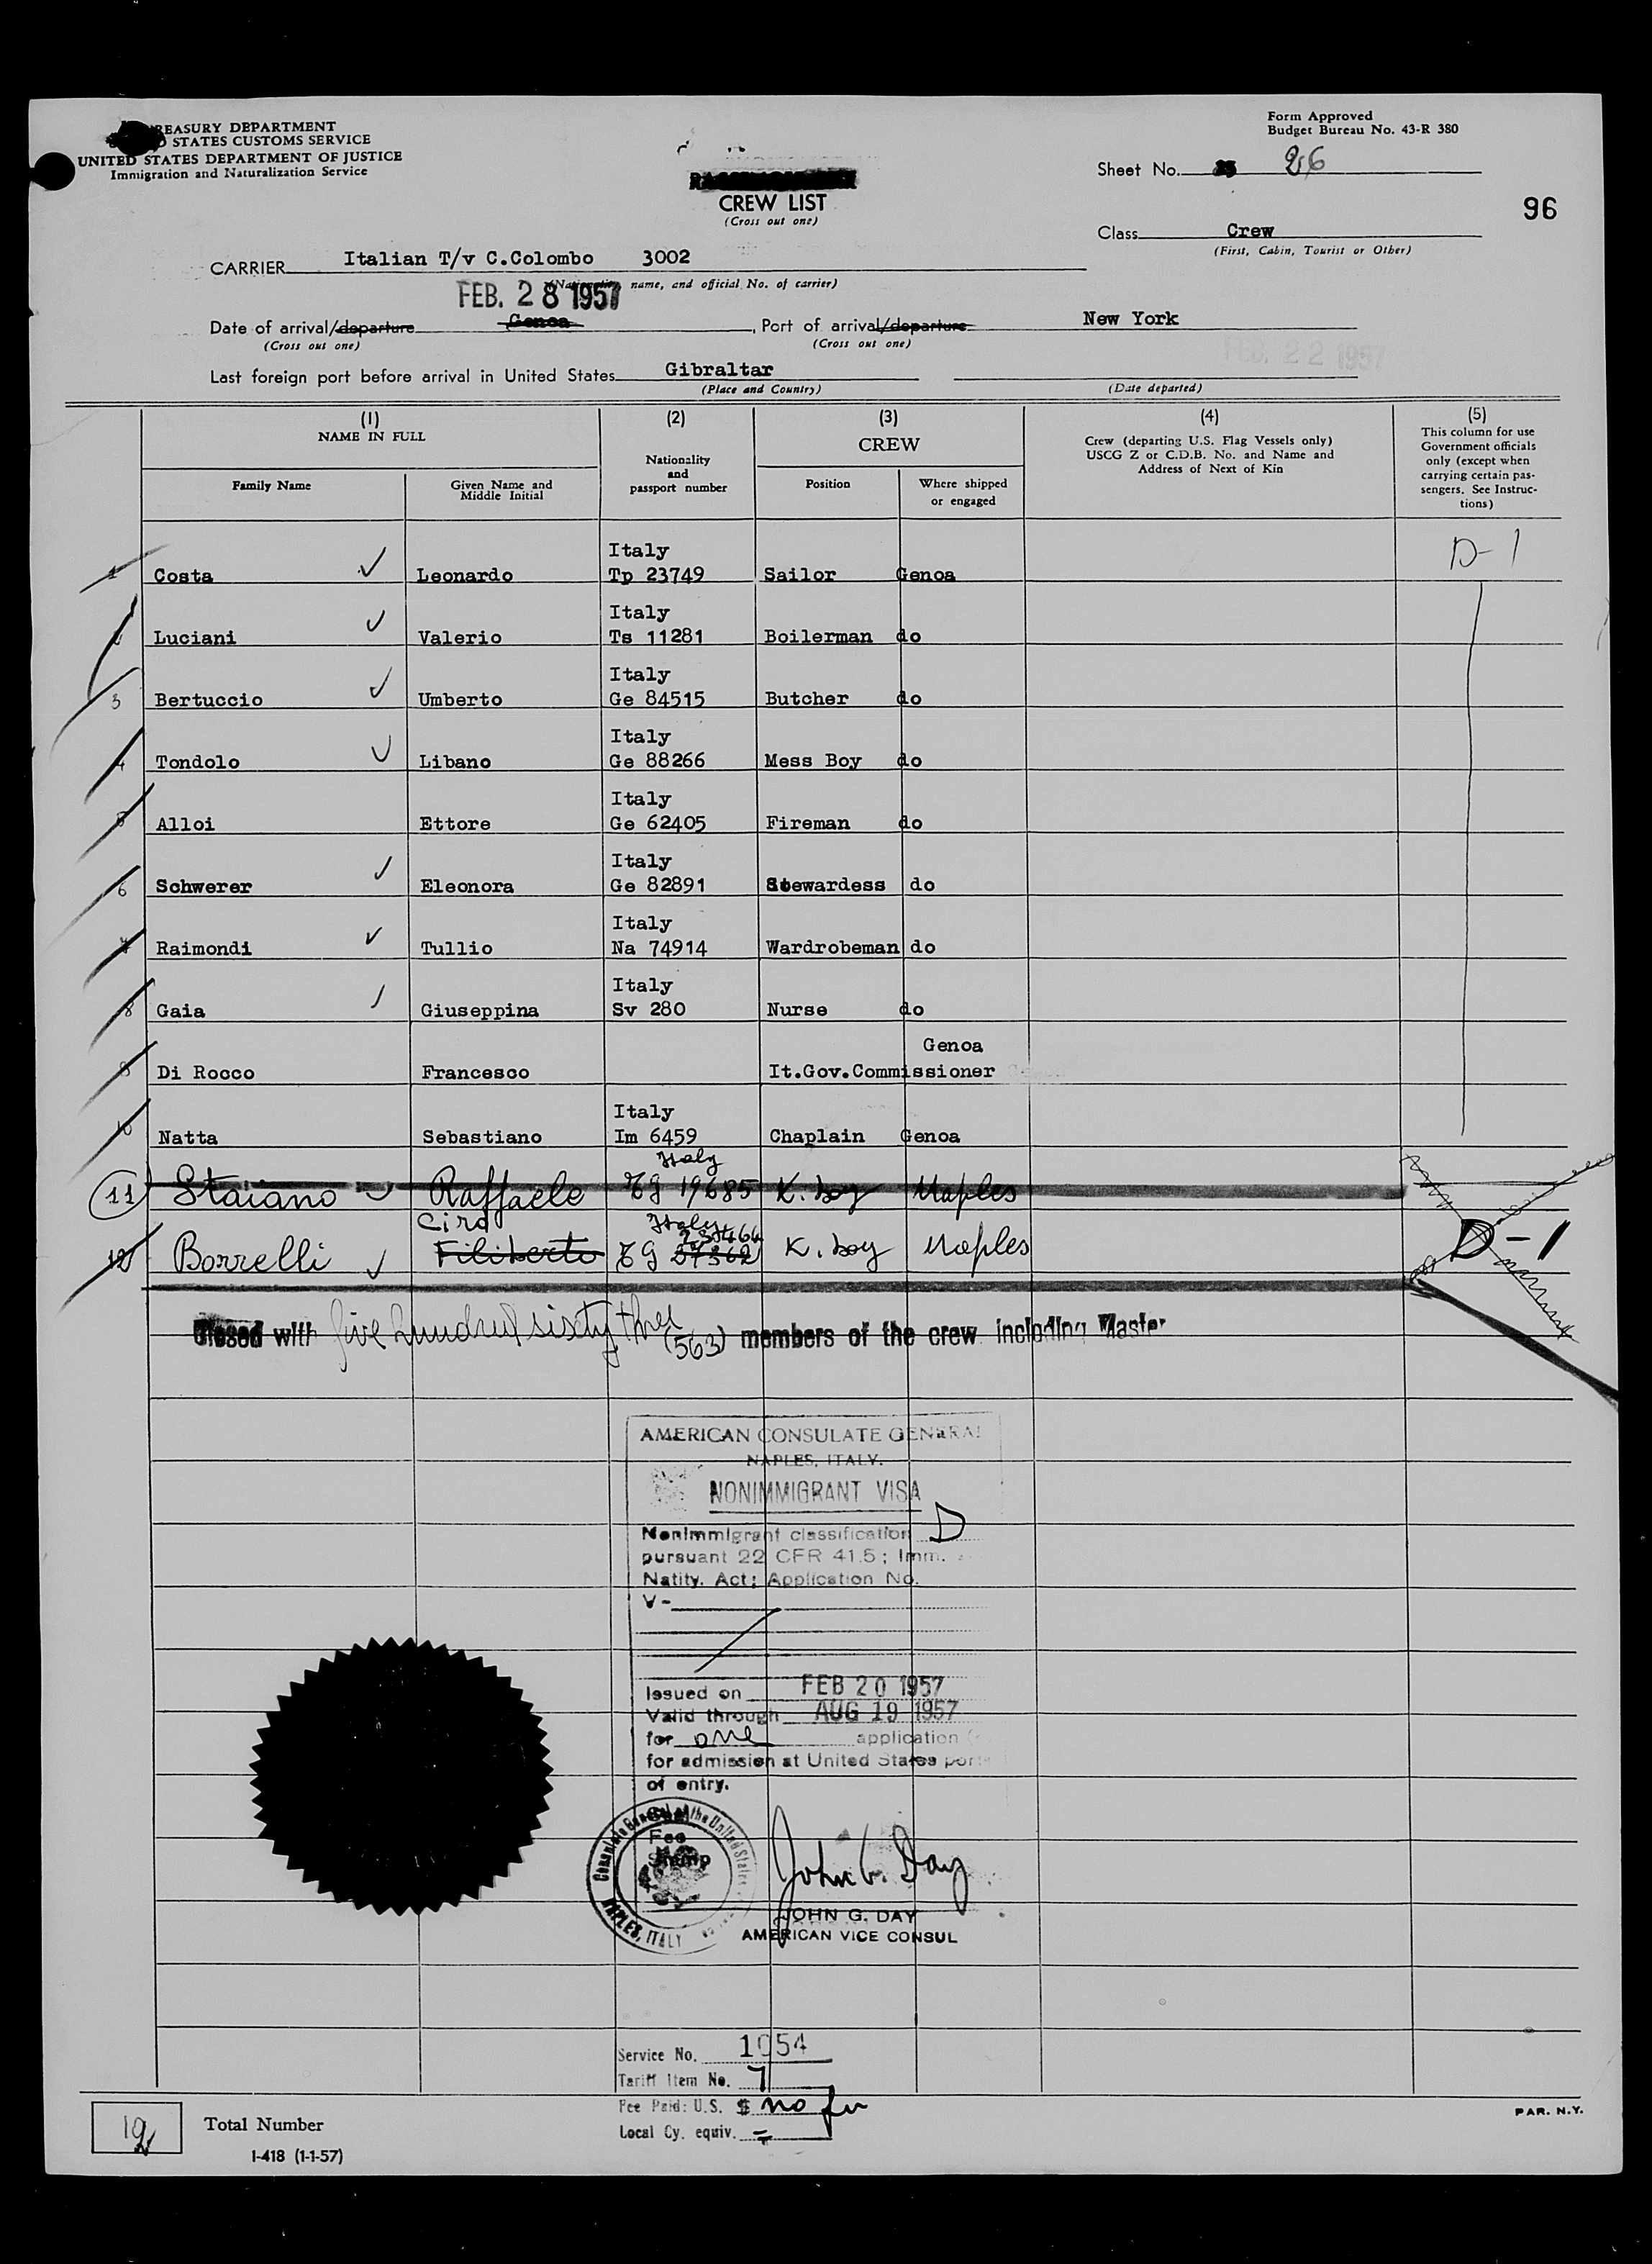 TREASURY DEPARTMENT
STATES CUSTOMS SERVICE
UNITED STATES DEPARTMENT OF JUSTICE
Immigration and Naturalization Service
Form Approved
Budget Bureau No. 43-R 380
Sheet No. 26
96
CREW LIST
(Cross out one)
Class Crew
(First, Cabin, Tourist or Other)
CARRIER Italian T/v C.Colombo 3002
name, and official No. of carrier)
FEB. 28 1957
Date of arrival/departure Genoa, Port of arrival/departure New York
(Cross out one) (Cross out one)
FEB. 22 1957
Last foreign port before arrival in United States Gibraltar
(Place and Country) (Date departed)
(1) (2) (3) (4) (5)
NAME IN FULL
Nationality and passport number
CREW
Crew (departing U.S. Flag Vessels only)
USCG Z or C.D.B. No. and Name and
Address of Next of Kin
This column for use
Government officials
only (except when
carrying certain pas-
sengers. See Instruc-
tions)
Family Name Given Name and Middle Initial Position Where shipped or engaged
Italy D-1
1 Costa Leonardo Tp 23749 Sailor Genoa
Italy
Luciani Valerio Ts 11281 Boilerman do
Italy
3 Bertuccio Umberto Ge 84515 Butcher do
Italy
4 Tondolo Libano Ge 88266 Mess Boy do
Italy
5 Alloi Ettore Ge 62405 Fireman do
Italy
6 Schwerer Eleonora Ge 82891 Stewardess do
Italy
7 Raimondi Tullio Na 74914 Wardrobeman do
Italy
8 Gaia Giuseppina Sv 280 Nurse do
Genoa
9 Di Rocco Francesco It.Gov.Commissioner
Italy
10 Natta Sebastiano Im 6459 Chaplain Genoa
Italy
11 Staiano Raffaele TG 19685 K. boy Naples
Ciro Italy
12 Borrelli Filiberto TG K. boy Naples D-1
Closed with five hundred sixty three (563) members of the crew including Master
AMERICAN CONSULATE GENERAL
NAPLES, ITALY.
NONIMMIGRANT VISA
Nonimmigrant classification D
pursuant 22 CFR 41.5; Imm.
Natity. Act; Application No.
V-
Issued on FEB 20 1957
Valid through AUG 19 1957
for one application
for admission at United States ports
of entry.
Fee
Stamp
Consulate General of the United States
NAPLES, ITALY
John G. Day
JOHN G. DAY
AMERICAN VICE CONSUL
Service No. 1054
Tariff Item No. 7
Fee Paid: U.S. $ no fee
Local Cy. equiv. =
12 Total Number
I-418 (1-1-57)
PAR. N.Y.